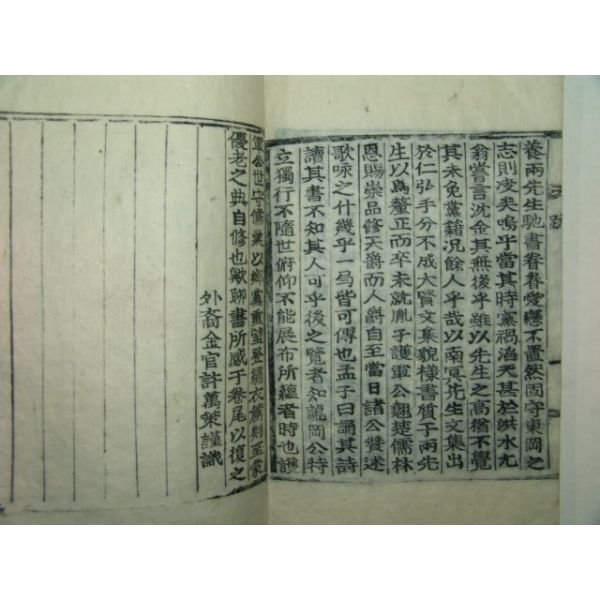 養兩先生馳書眷眷愛戀不置然固守東岡之
志則凌矣嗚乎當其時黨禍滔天甚於洪水尤
翁嘗言沈金其無後乎雖以先生之高猶不覺
其未免黨籍況餘人乎哉以南冥先生文集出
於仁弘手分不成大賢文集貌樣書質于兩先
生以爲釐正而卒未就胤子護軍公翹楚儒林
恩賜崇品修天爵而人爵自至當日諸公贊述
歌咏之什幾乎一局皆可傳也孟子曰誦其詩
讀其書不知其人可乎後之覽者知龍岡公特
立獨行不隨世俯仰不能展布所蘊者時也護
軍公世守儒業以鄉黨重望登繡衣薦剡至蒙
優老之典自修也歟聊書所感于卷尾以復之
外裔金官許萬策謹識
跋